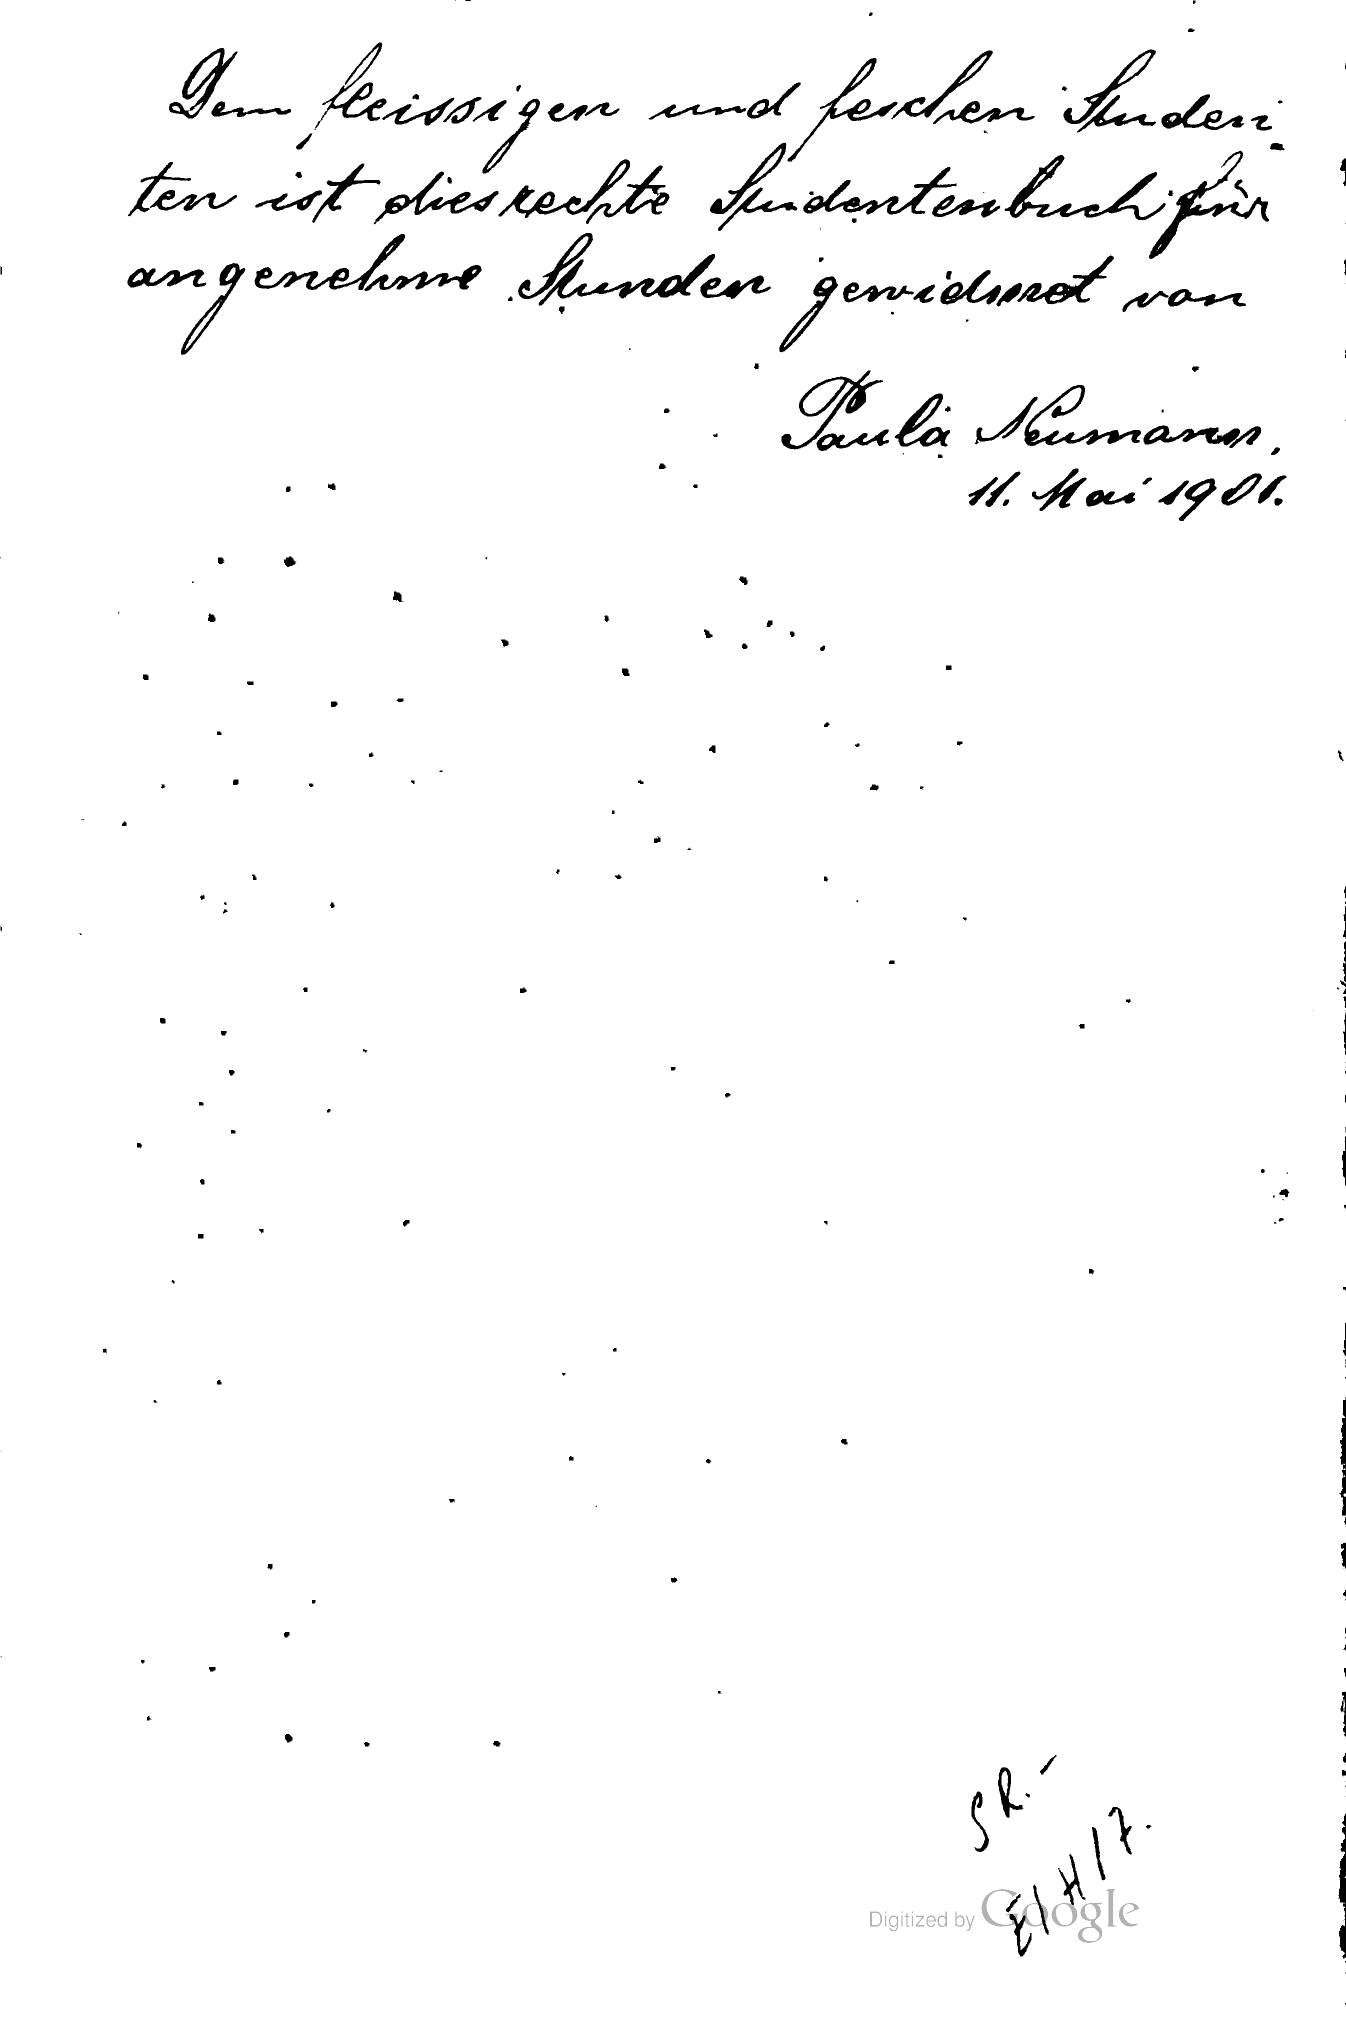 Dem fleissigen und feschen Studen-
ten ist dies rechte Studentenbuch für
angenehme Stunden gewidmet von
Paula Neumann,
11. Mai 1901.
SR.-
Digitized by Google